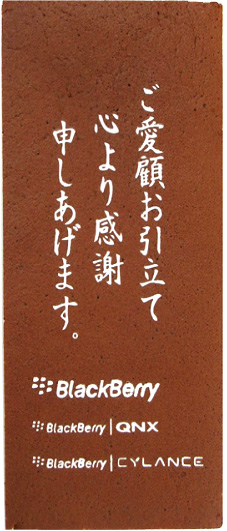 ご愛顧お引立て
心より感謝
申しあげます。
BlackBerry
BlackBerry | QNX
BlackBerry | CYLANCE